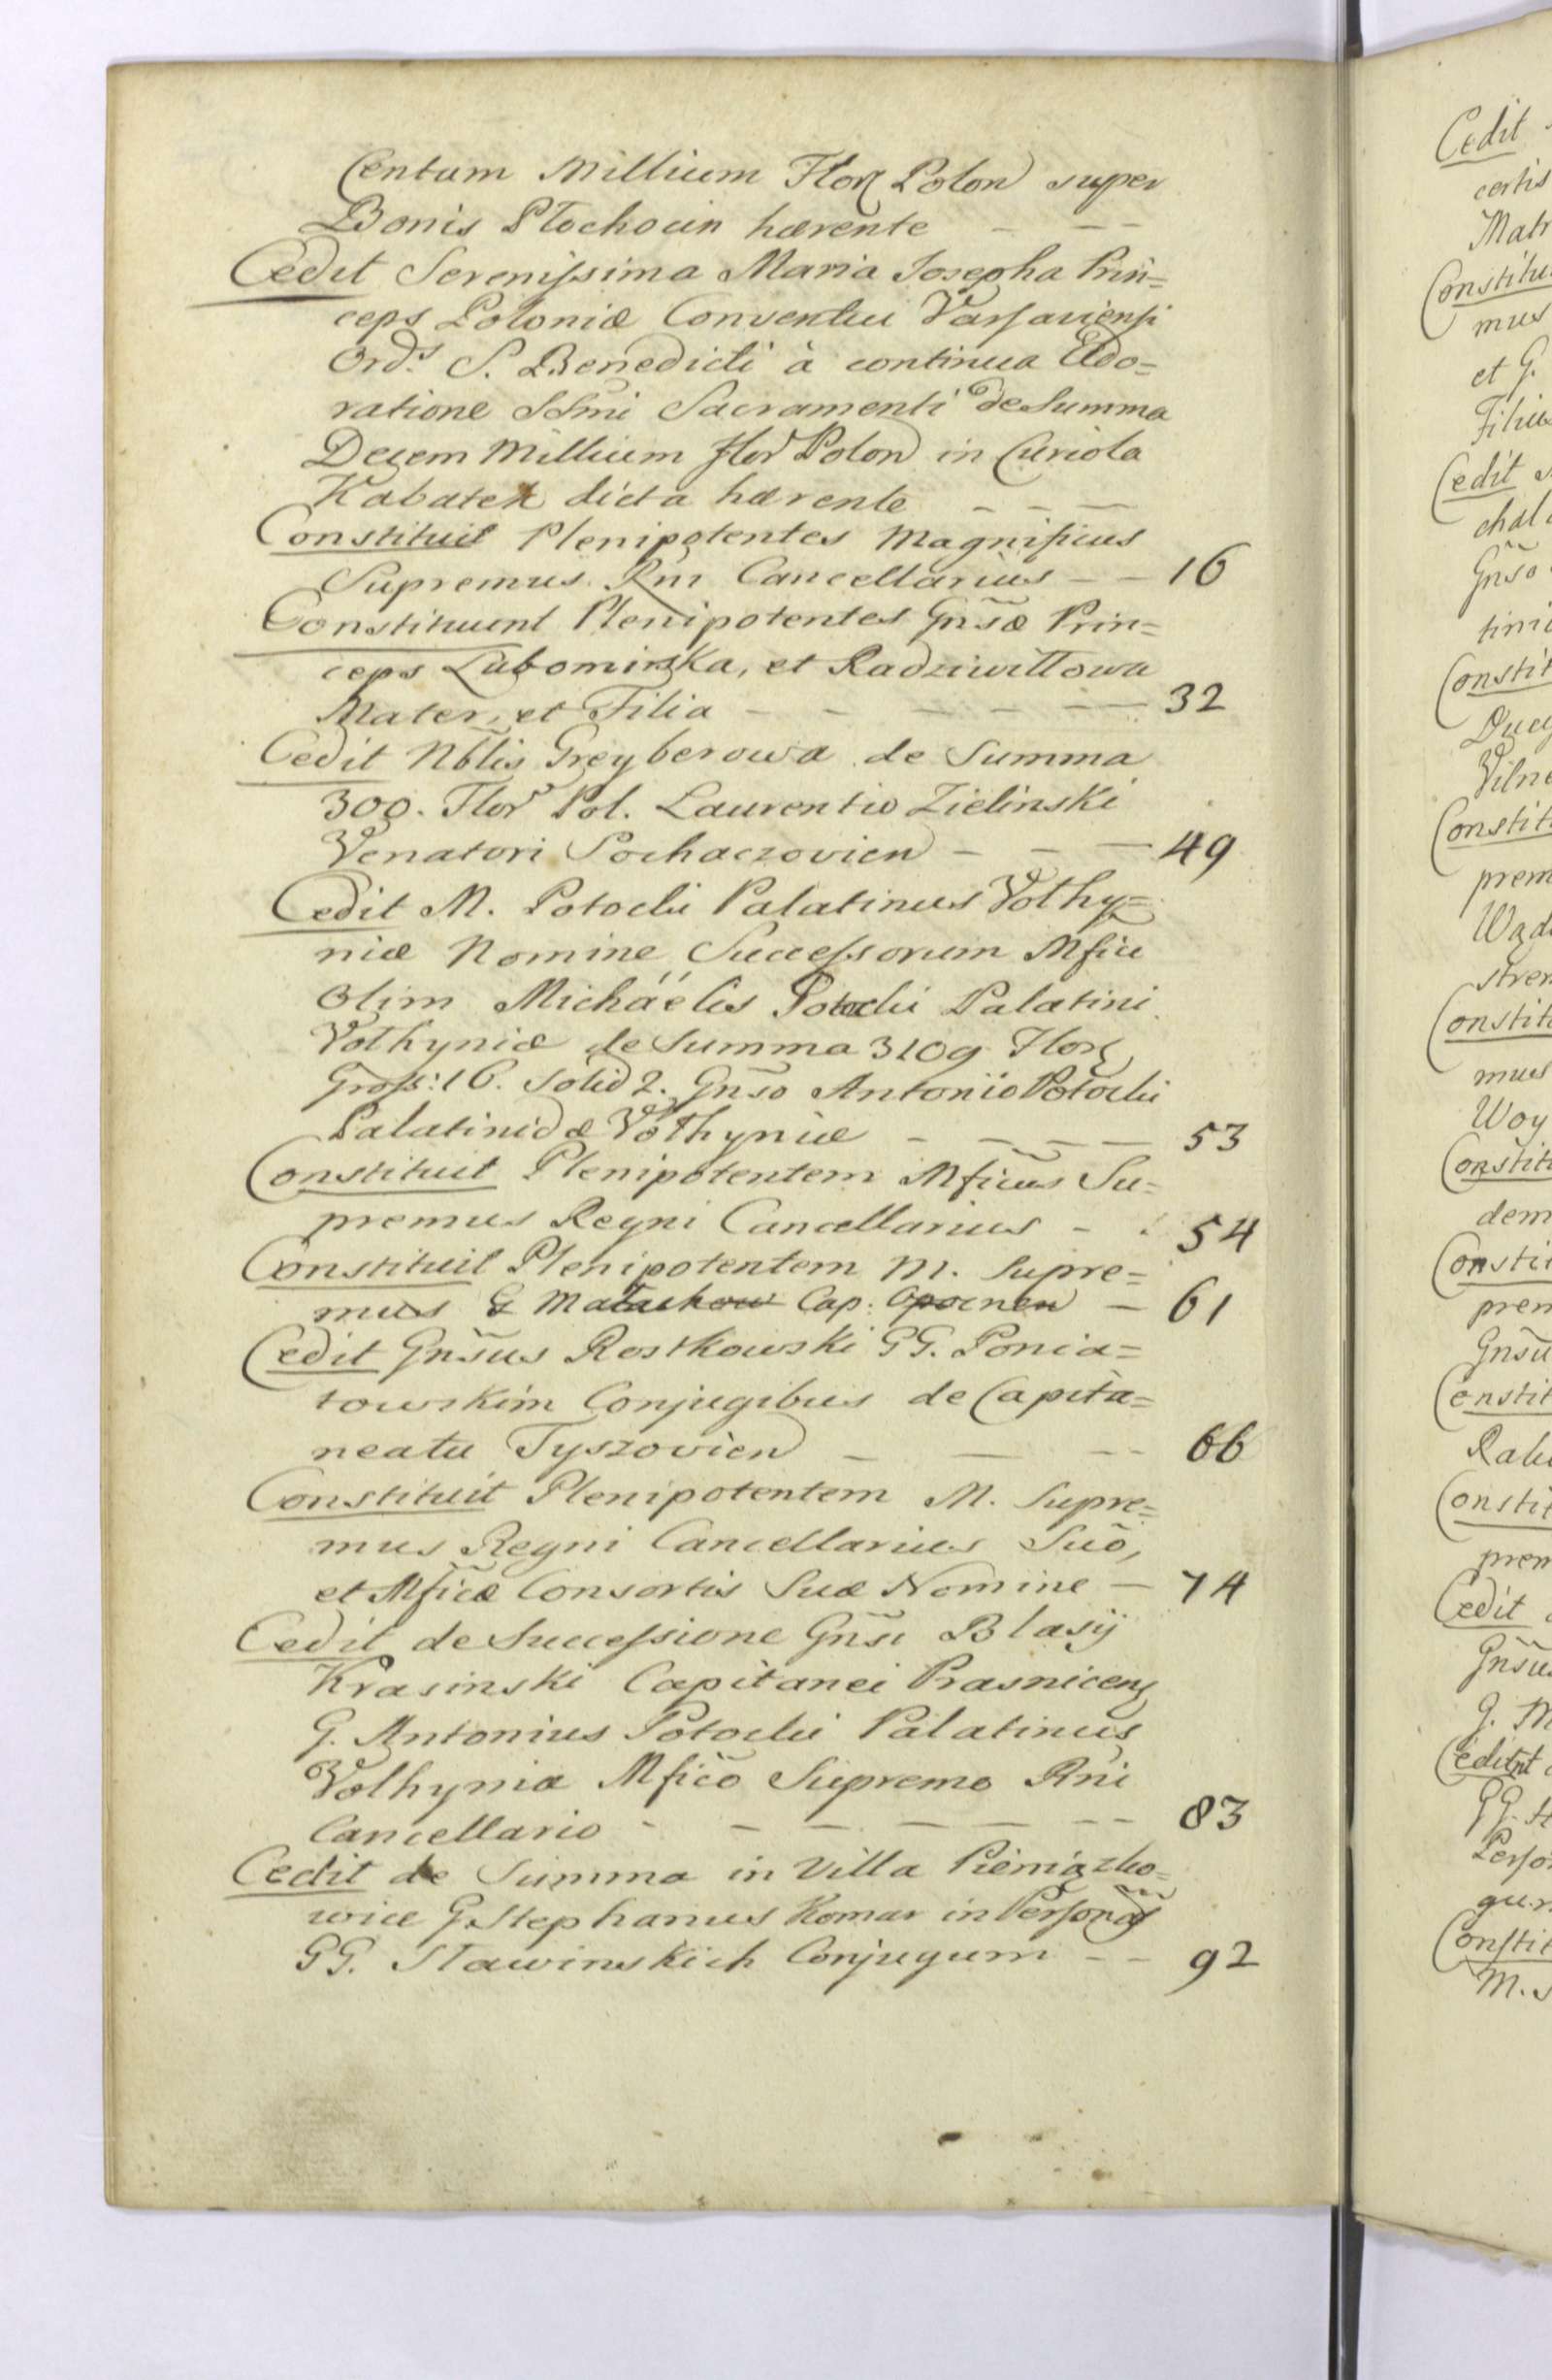 Centum Millium Flor Polon super
Bonis Płochocin hærente - - -
Cedit Serenissima Maria Josepha Prin=
ceps Poloniæ Conventui Varsaviensi
Ord: S. Benedicti à continua Ado=
ratione SSmi Sacramenti de Summa
Decem Millium Flor Polon in Curiola
Kabatek dicta hærente - - -
Constituit Plenipotentes Magnificus
Supremus Rni Cancellarius - - 16
Constituunt Plenipotentes Gnsæ Prin=
ceps Lubomirska, et Radziwiłłowa
Mater, et Filia - - - - - 32
Cedit Nblis Greyberowa de Summa
300. Flor Pol. Laurentio Zielinski
Venatori Sochaczovien - - - 49
Cedit M. Potocki Palatinus Volhy=
niæ Nomine Successorum Mfici
Olim Michaélis Potocki Palatini
Volhyniæ de Summa 3109 Flor
Gross: 16. Solid 2. Gnso Antonio Potocki
Palatinidæ Volhyniæ - - - - 53
Constituit Plenipotentem Mficus Su=
premus Regni Cancellarius - . 54
Constituit Plenipotentem M. Supre=
mus G Małachow Cap: Opocnen - 61
Cedit Gnsus Rostkowski GG. Ponia=
towskim Conjugibus de Capita=
neatu Tyszovien - - - - 66
Constituit Plenipotentem M. Supre=
mus Regni Cancellarius Suo,
et Mficæ Consortis Suæ Nomine - 74
Cedit de Successione Gnsi Blasij
Krasinski Capitanei Prasnicen
G. Antonius Potocki Palatinus
Volhyniæ Mfico Supremo Rni
Cancellario - - - - - - - 83
Cedit de Summa in Villa Pieniązko=
wice G. Stephanus Komar in Personas
GG. Sławinskich Conjugum - - 92
Cedit
certis
Matr
Constitu
mus
et G.
Filius
Cedit
chal
Gnso
tini
Constit
Duc
Viln
Constit
prem
Wąd
stren
Constit
mus
Woy
Constit
dem
Constit
prem
Gnsu
Constit
Rak
Constit
prem
Cedit
Gnsu
G. M
Cedunt
GG. H
Perso
gum
Constit
M. S